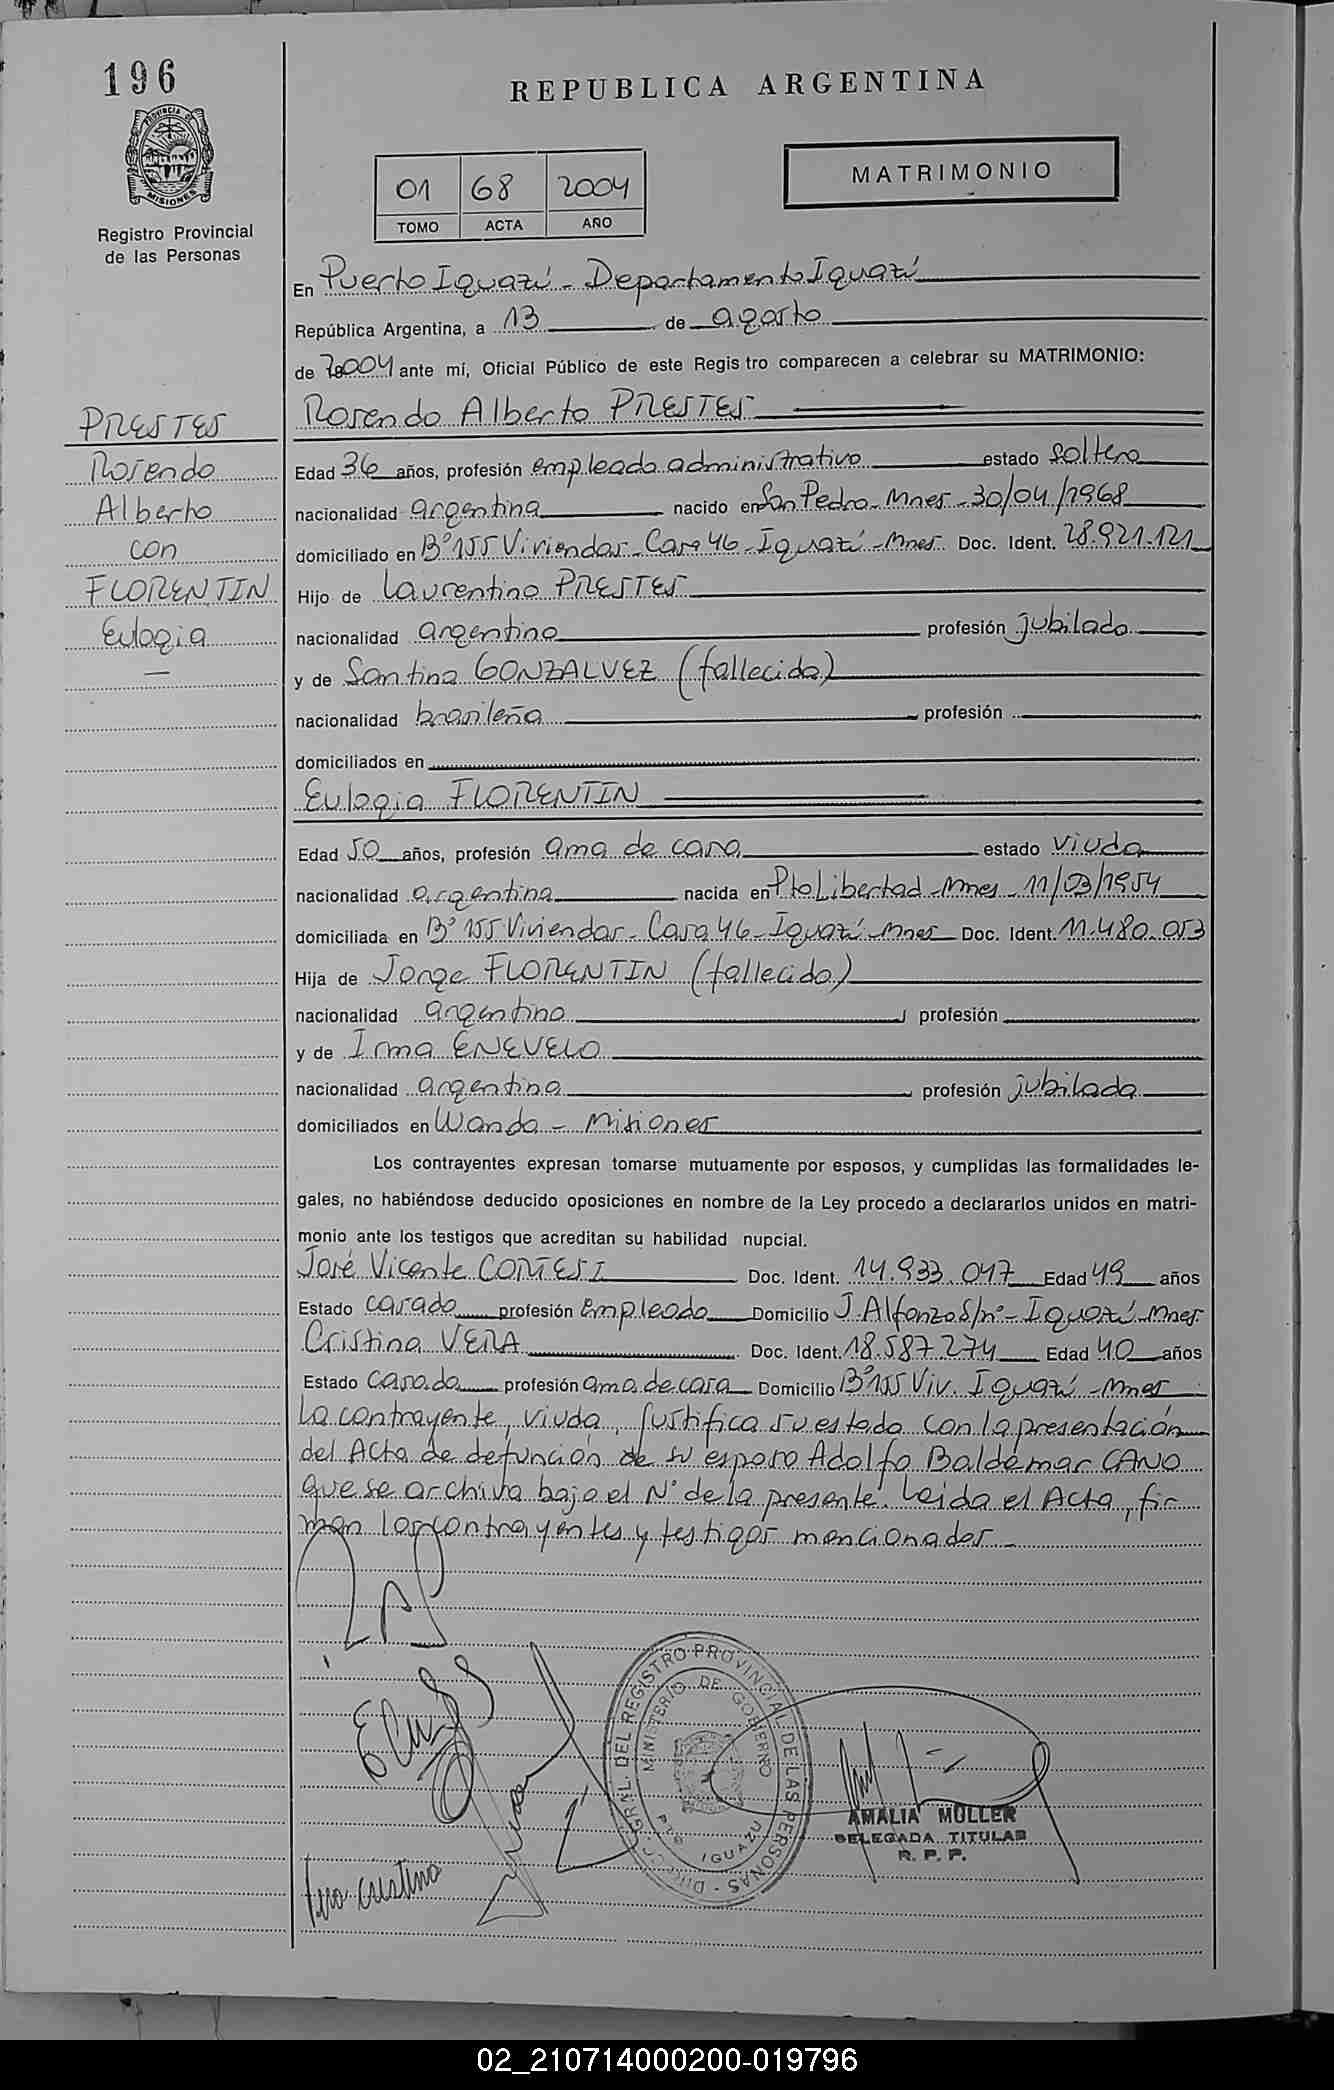 196
REPUBLICA ARGENTINA
PROVINCIA DE
MISIONES
Registro Provincial
de las Personas
01 68 2004
TOMO ACTA AÑO
MATRIMONIO
En Puerto Iguazú - Departamento Iguazú
República Argentina, a 13 de agosto
de 2004 ante mí, Oficial Público de este Regis tro comparecen a celebrar su MATRIMONIO:
Rosendo Alberto PRESTES
PRESTES
Rosendo
Alberto
con
FLORENTIN
Eulogia
—
Edad 36 años, profesión empleado administrativo estado soltero
nacionalidad argentina nacido en San Pedro - Mnes - 30/04/1968
domiciliado en Bº 155 Viviendas - Casa 46 - Iguazú - Mnes Doc. Ident. 28.921.121
Hijo de Laurentino PRESTES
nacionalidad argentino profesión jubilado
y de Santina GONZALVEZ (fallecida)
nacionalidad brasileña profesión
domiciliados en
Eulogia FLORENTIN
Edad 50 años, profesión ama de casa estado viuda
nacionalidad argentina nacida en Pto Libertad - Mnes - 11/03/1954
domiciliada en Bº 155 Viviendas - Casa 46 - Iguazú - Mnes Doc. Ident. 11.480.053
Hija de Jorge FLORENTIN (fallecido)
nacionalidad argentino profesión
y de Irma ENEVELO
nacionalidad argentina profesión jubilada
domiciliados en Wanda - Misiones
Los contrayentes expresan tomarse mutuamente por esposos, y cumplidas las formalidades le-
gales, no habiéndose deducido oposiciones en nombre de la Ley procedo a declararlos unidos en matri-
monio ante los testigos que acreditan su habilidad nupcial.
José Vicente CORTESI Doc. Ident. 14.933.047 Edad 49 años
Estado casado profesión Empleado Domicilio J. Alfonzo S/nº - Iguazú - Mnes.
Cristina VERA Doc. Ident. 18.587.274 Edad 40 años
Estado casada profesión ama de casa Domicilio Bº 155 Viv. Iguazú - Mnes
La contrayente, viuda, justifica su estado con la presentación
del Acta de defunción de su esposo Adolfo Baldemar CANO
que se archiva bajo el Nº de la presente. Leida el Acta, fir-
man los contrayentes y testigos mencionados -
DIRECC. GRAL. DEL REGISTRO PROVINCIAL DE LAS PERSONAS
MINISTERIO DE GOBIERNO
IGUAZU
AMALIA MÜLLER
DELEGADA TITULAR
R. P. P.
Vera Cristina
02_210714000200-019796